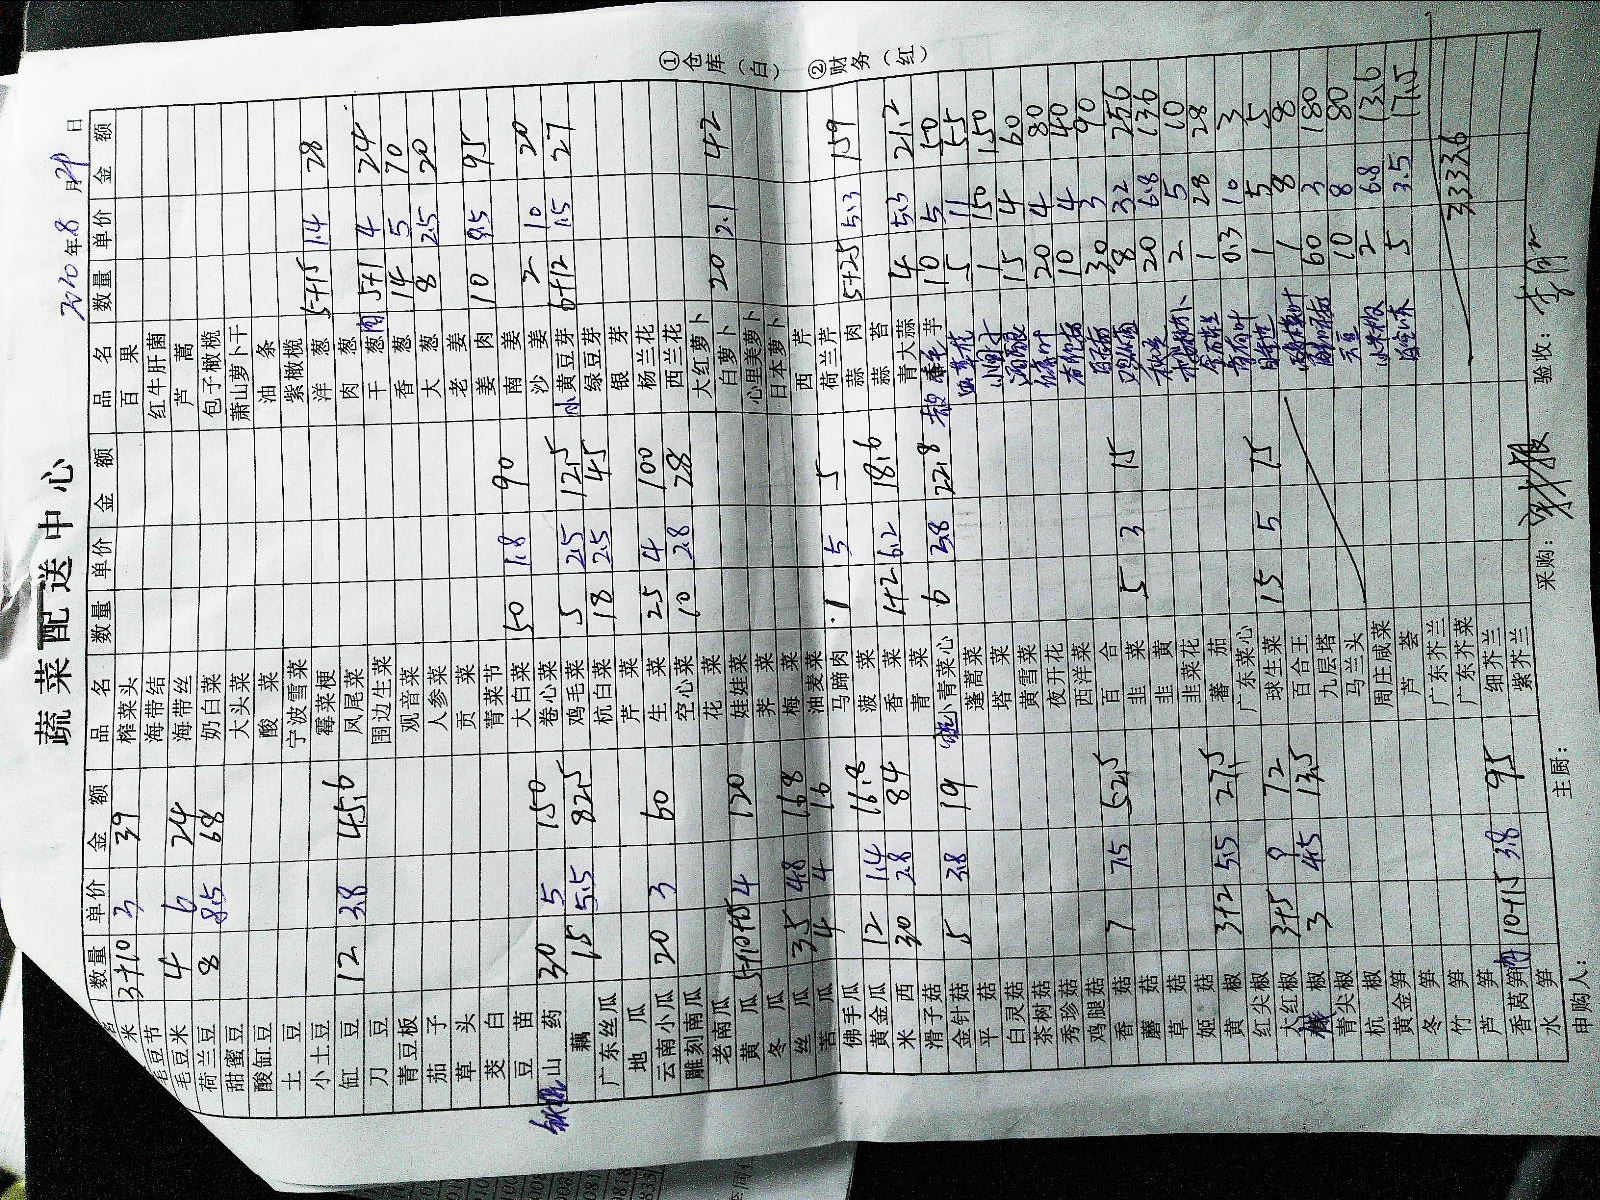 蔬菜配送中心
2010年8月21日
数量 单价 金额 品名 数量 单价 金额 品名 数量 单价 金额
米 3+10 3 39 榨菜头 百果
毛豆节 海带结 红牛肝菌
毛豆米 4 6 24 海带丝 芦蒿
荷兰豆 8 8.5 68 奶白菜 包子橄榄
甜蜜豆 大头菜 萧山萝卜干
酸缸豆 酸菜 油条
土豆 宁波雪菜 紫橄榄
小土豆 霉菜梗 洋葱 5+15 1.4 28
缸豆 12 3.8 45.6 凤尾菜 肉葱
刀豆 围边生菜 干葱肉 5+1 4 24
青豆板 观音菜 香葱 14 5 70
茄子 人参菜 大葱 8 2.5 20
草头 贡菜 老姜
茭白 青菜节 姜肉 10 9.5 95
豆苗 大白菜 50 1.8 90 南姜
山药 30 5 150 卷心菜 沙姜 2 10 20
藕 15 5.5 82.5 鸡毛菜 5 2.5 12.5 小黄豆芽 6+12 1.5 27
广东丝瓜 杭白菜 18 2.5 45 绿豆芽
地瓜 芹菜 银芽
云南小瓜 20 3 60 生菜 25 4 100 杨兰花
雕刻南瓜 空心菜 10 2.8 28 西兰花
老南瓜 花菜 大红萝卜
黄瓜 5+10+15 4 120 娃娃菜 白萝卜 20 2.1 42
冬瓜 荠菜 心里美萝卜
丝瓜 35 4.8 168 梅菜 日本萝卜
苦瓜 4 4 16 油麦菜 西芹
佛手瓜 马蹄肉 1 5 5 荷兰芹
黄金瓜 12 1.4 16.8 菠菜 蒜肉 5+25 5.3 159
米西 30 2.8 84 香菜 1+2 6.2 18.6 蒜苔
滑子菇 青菜 青大蒜 4 5.3 21.2
金针菇 5 3.8 19 小青菜心 6 3.8 22.8 芋 10 5 50
平菇 蓬蒿菜 5 11 55
白灵菇 塔菜 1 150 150
茶树菇 黄雪菜 15 4 60
秀珍菇 夜开花 20 4 80
鸡腿菇 西洋菜 10 4 40
香菇 7 7.5 52.5 百合 30 3 90
蘑菇 韭菜 5 3 15 8 32 256
草菇 韭黄 20 6.8 136
姬菇 韭菜花 2 5 10
黄椒 3+2 5.5 27.5 蕃茄 1 28 28
红尖椒 广东菜心 0.3 10 3
大红椒 3+5 9 72 球生菜 15 5 75 1 5 5
椒 3 4.5 13.5 百合王 1 8 8
青尖椒 九层塔 60 3 180
杭椒 马兰头 10 8 80
黄金笋 周庄咸菜 2 6.8 13.6
冬笋 芦荟 5 3.5 17.5
竹笋 广东芥兰
芦笋 广东芥菜 3333.6
香莴笋 10+15 3.8 95 细芥兰
水笋 紫芥兰
申购人： 主厨： 采购： 验收：
①仓库（白） ②财务（红）